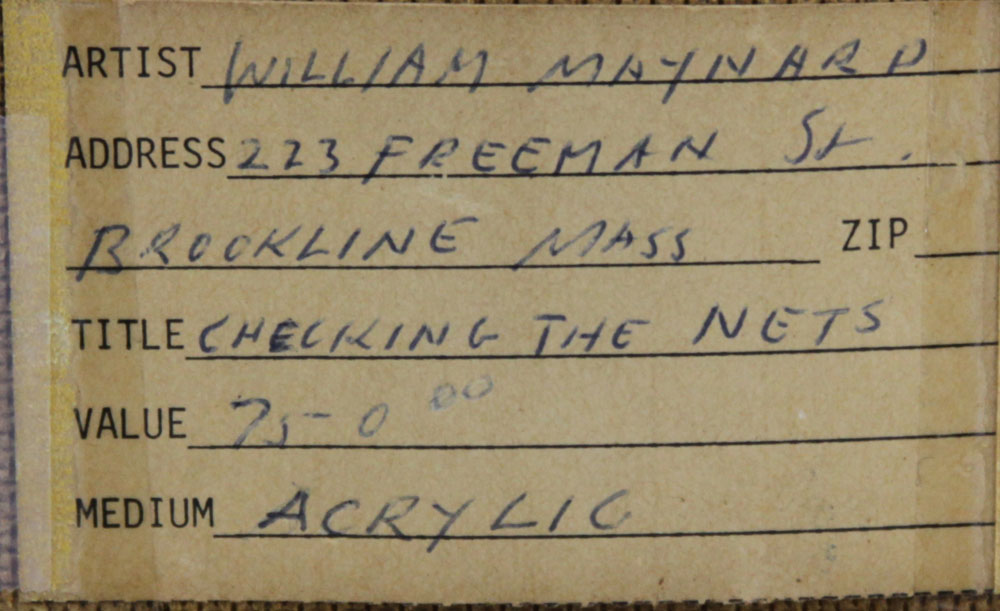 ARTIST WILLIAM MAYNARD
ADDRESS 223 FREEMAN St.
BROOKLINE MASS ZIP
TITLE CHECKING THE NETS
VALUE 750 00
MEDIUM ACRYLIC